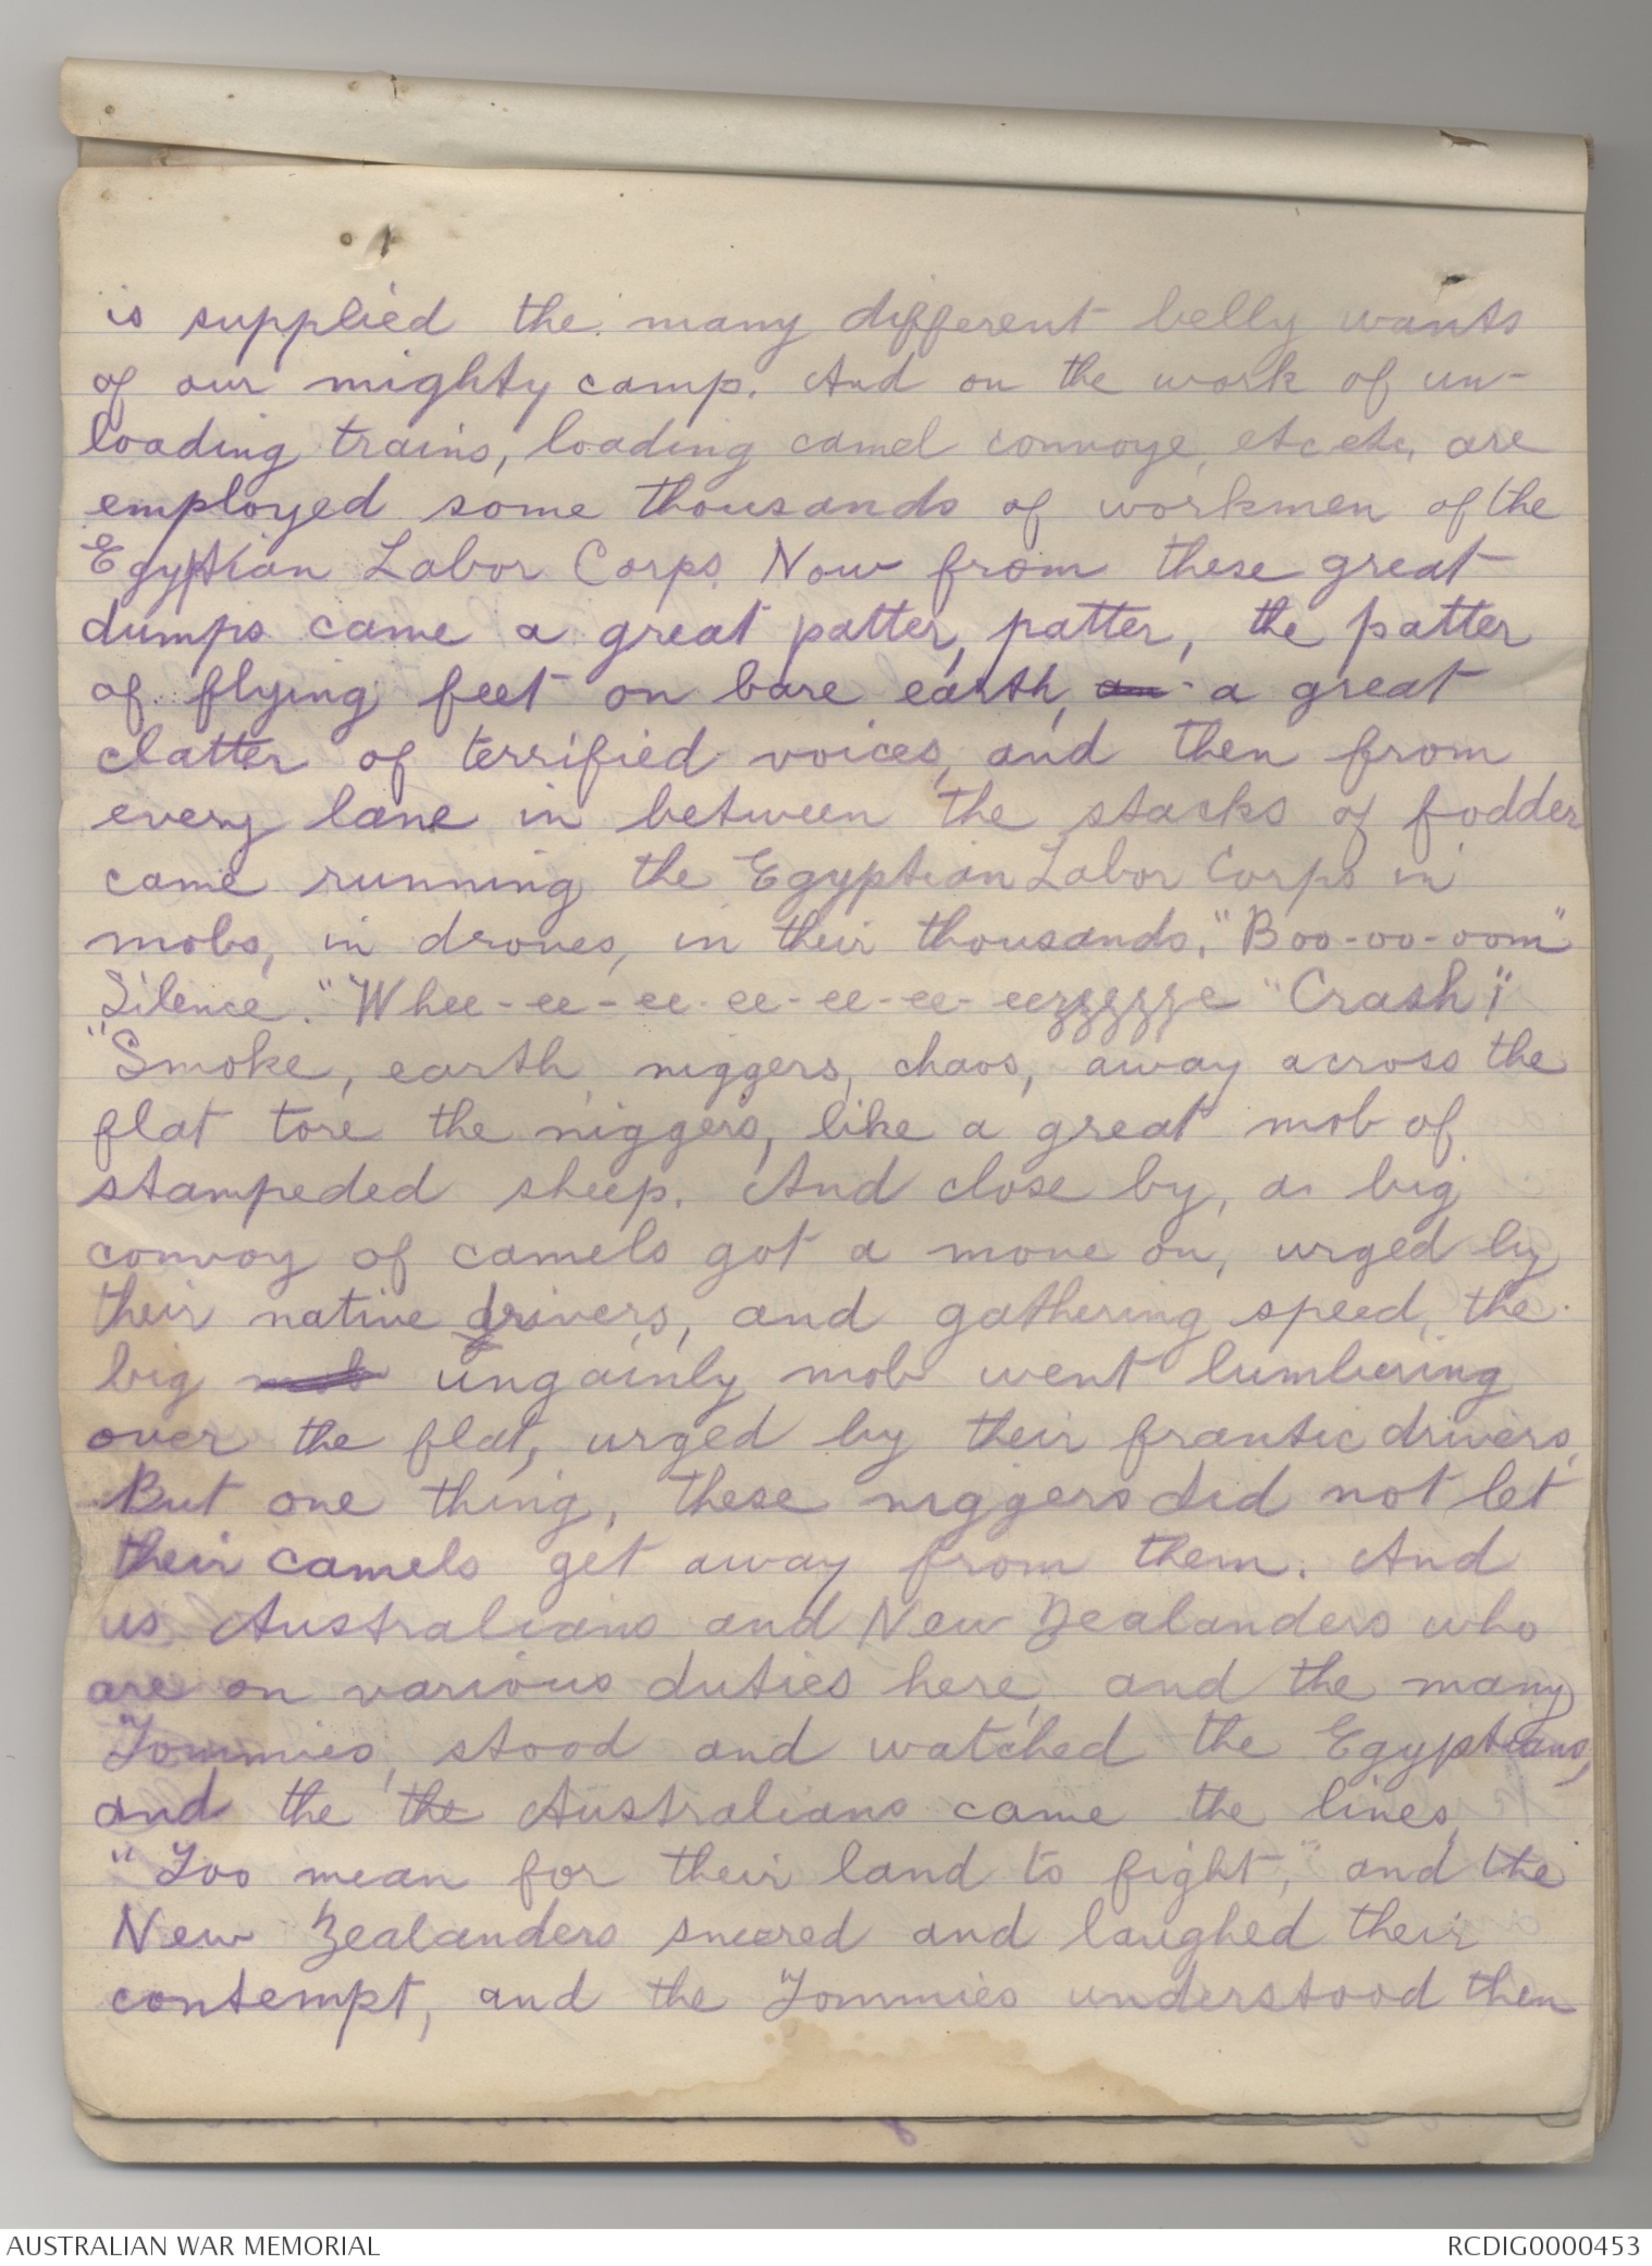 is supplied the many different belly wants
of our mighty camp. And on the work of un-
loading trains, loading camel convoye, etc etc, are
employed some thousands of workmen of the
Egyptian Labor Corps. Now from these great
dumps came a great patter, patter, the patter
of flying feet on bare earth, an a great
clatter of terrified voices, and then from
every lane in between the stacks of fodder
came running the Egyptian Labor Corps in
mobs, in droves, in their thousands. "Boo-oo-oom"
Silence. "Whee-ee-ee-ee-ee-ee-eezzzzzze" "Crash!"
"Smoke, earth, niggers, chaos, away across the
flat tore the niggers, like a great mob of
stampeded sheep. And close by, a big
convoy of camels got a move on, urged by
their native drivers, and gathering speed, the
big mob ungainly mob went lumbering
over the flat, urged by their frantic drivers.
But one thing, these niggers did not let
their camels get away from them. And
us Australians and New Zealanders who
are on various duties here, and the many
Tommies, stood and watched the Egyptians,
and the the Australians came the lines,
"Too mean for their land to fight," and the
New Zealanders sneered and laughed their
contempt, and the Tommies understood then
AUSTRALIAN WAR MEMORIAL
RCDIG0000453